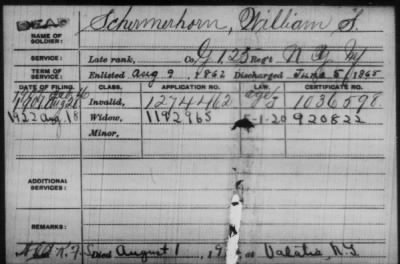 DEAD
NAME OF SOLDIER: Schermerhorn, William
SERVICE: Late rank, Co. G 125 Reg't N Y
TERM OF SERVICE: Enlisted Aug 9, 1862 Discharged June 5, 1865
DATE OF FILING. CLASS. APPLICATION NO. LAW. CERTIFICATE NO.
Invalid, 1274462 1036598
1922 Aug 18 Widow, 1192965 -1-20 920822
Minor,
ADDITIONAL SERVICES:
REMARKS:
Died August 1, 19 at Valatie, N.Y